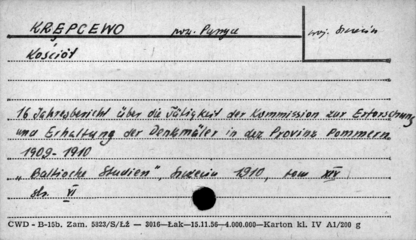 KRĘPCEWO pow. Pyrzyce woj. Szczecin
Kościół
16 Jahresbericht über die Tätigkeit der Kommission zur Erforschung
und Erhaltung der Denkmäler in der Provinz Pommern
1909-1910
„Baltische Studien", Szczecin 1910, tom XIV
str. VI
CWD - B-15b. Zam. 5823/S/Łż — 3016—Łak—15.11.56—4.000.000—Karton kl. IV A1/200 g